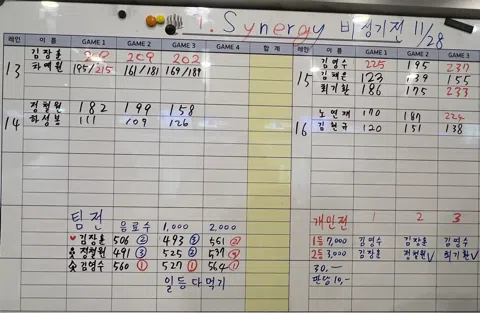 T. Synergy 비정기전 11/28
레인 이름 GAME 1 GAME 2 GAME 3 GAME 4 합계
13 김장훈 209 202
차예원 195/215 161/181 169/189
14 정철원 182 199 158
하성봉 111 109 126
레인 이름 GAME 1 GAME 2 GAME 3
15 김영수 225 195 237
김채은 123 139 155
최기환 186 175 233
16 노연재 170 187 224
김현규 120 151 138
팀전 음료수 1,000 2,000
김장훈 506 ② 493 ③ 561 ②
정철원 491 ③ 525 ② 537 ③
김영수 560 ① 527 ① 564 ①
일등 다먹기
개인전 1 2 3
1등 7,000 김영수 김장훈 김영수
2등 3,000 김장훈 정철원 최기환
30,-
판당 10,-